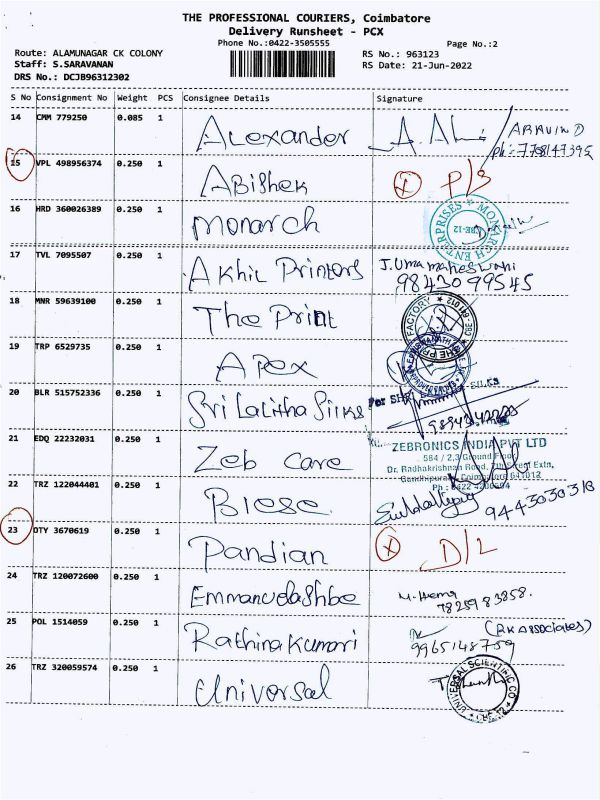 THE PROFESSIONAL COURIERS, Coimbatore
Delivery Runsheet - PCX
Phone No.:0422-3505555
Page No.:2
Route: ALAMUNAGAR CK COLONY
RS No.: 963123
Staff: S.SARAVANAN
RS Date: 21-Jun-2022
DRS No.: DCJB96312302
S No Consignment No Weight PCS Consignee Details Signature
14 CMM 779250 0.085 1 Alexander ARAVIND
15 VPL 498956374 0.250 1 Abishek P/S
16 HRD 360026389 0.250 1 Monarch MONARCH ENTERPRISES
17 TVL 7095507 0.250 1 Akhil Printers J.Uma maheswari
9843099545
18 MNR 59639100 0.250 1 The Print FACTORY
19 TRP 6529735 0.250 1 Apex
20 BLR 515752336 0.250 1 Sri Lalitha Silks Per SILKS
21 EDQ 22232031 0.250 1 Zeb Care ZEBRONICS INDIA PVT LTD
584 / 2,3 Ground Floor,
Dr. Radhakrishnan Road, Extn,
Coimbatore 641012
22 TRZ 122044401 0.250 1 9443030313
23 DTY 3670619 0.250 1 Pandian D/L
24 TRZ 120072600 0.250 1 M. Hema
7825983858.
25 POL 1514059 0.250 1 Rathina Kumari (RK Associates)
9965148759
26 TRZ 320059574 0.250 1 Universal UNIVERSAL SCIENTIFIC CO